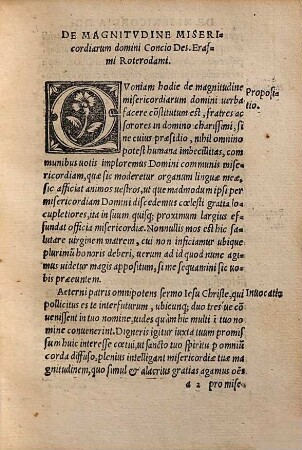 DE MAGNITVDINE MISERI-
cordiarum domini Concio Des. Eras-
mi Roterodami.
QVoniam hodie de magnitudine
misericordiarum domini uerba
facere cõstitutum est, fratres ac
sorores in domino charissimi, si
ne cuius præsidio, nihil omnino
potest humana imbecillitas, com
munibus uotis imploremus Domini communis mise-
ricordiam, quæ sic moderetur organum linguæ meæ,
sic afficiat animos uestros, ut quemadmodum ipsi per
misericordiam Domini discedemus cœlesti gratia lo-
cupletiores, ita in suum quisq; proximum largius ef-
fundat officia misericordiæ. Nonnullis mos est hic sa-
lutare uirginem matrem, cui non inficiamur ubique
plurimũ honoris deberi, uerum ad id quod nunc agi-
mus uidetur magis appositum, si me sequamini sic uo-
bis præeuntem.
Aeterni patris omnipotens sermo Iesu Christe, qui
pollicitus es te interfuturum, ubicunq; duo tres ue cõ-
uenissent in tuo nomine, uides quàm hic multi ĩ tuo no
mine conuenerint. Digneris igitur iuxta tuum promis
sum huic interesse cœtui, ut sancto tuo spiritu p omniũ
corda diffuso, plenius intelligant misericordiæ tuæ ma
gnitudinem, quo simul & alacrius gratias agamus oẽs
a 2 pro mise-
Proposi-
tio.
Inuocatio